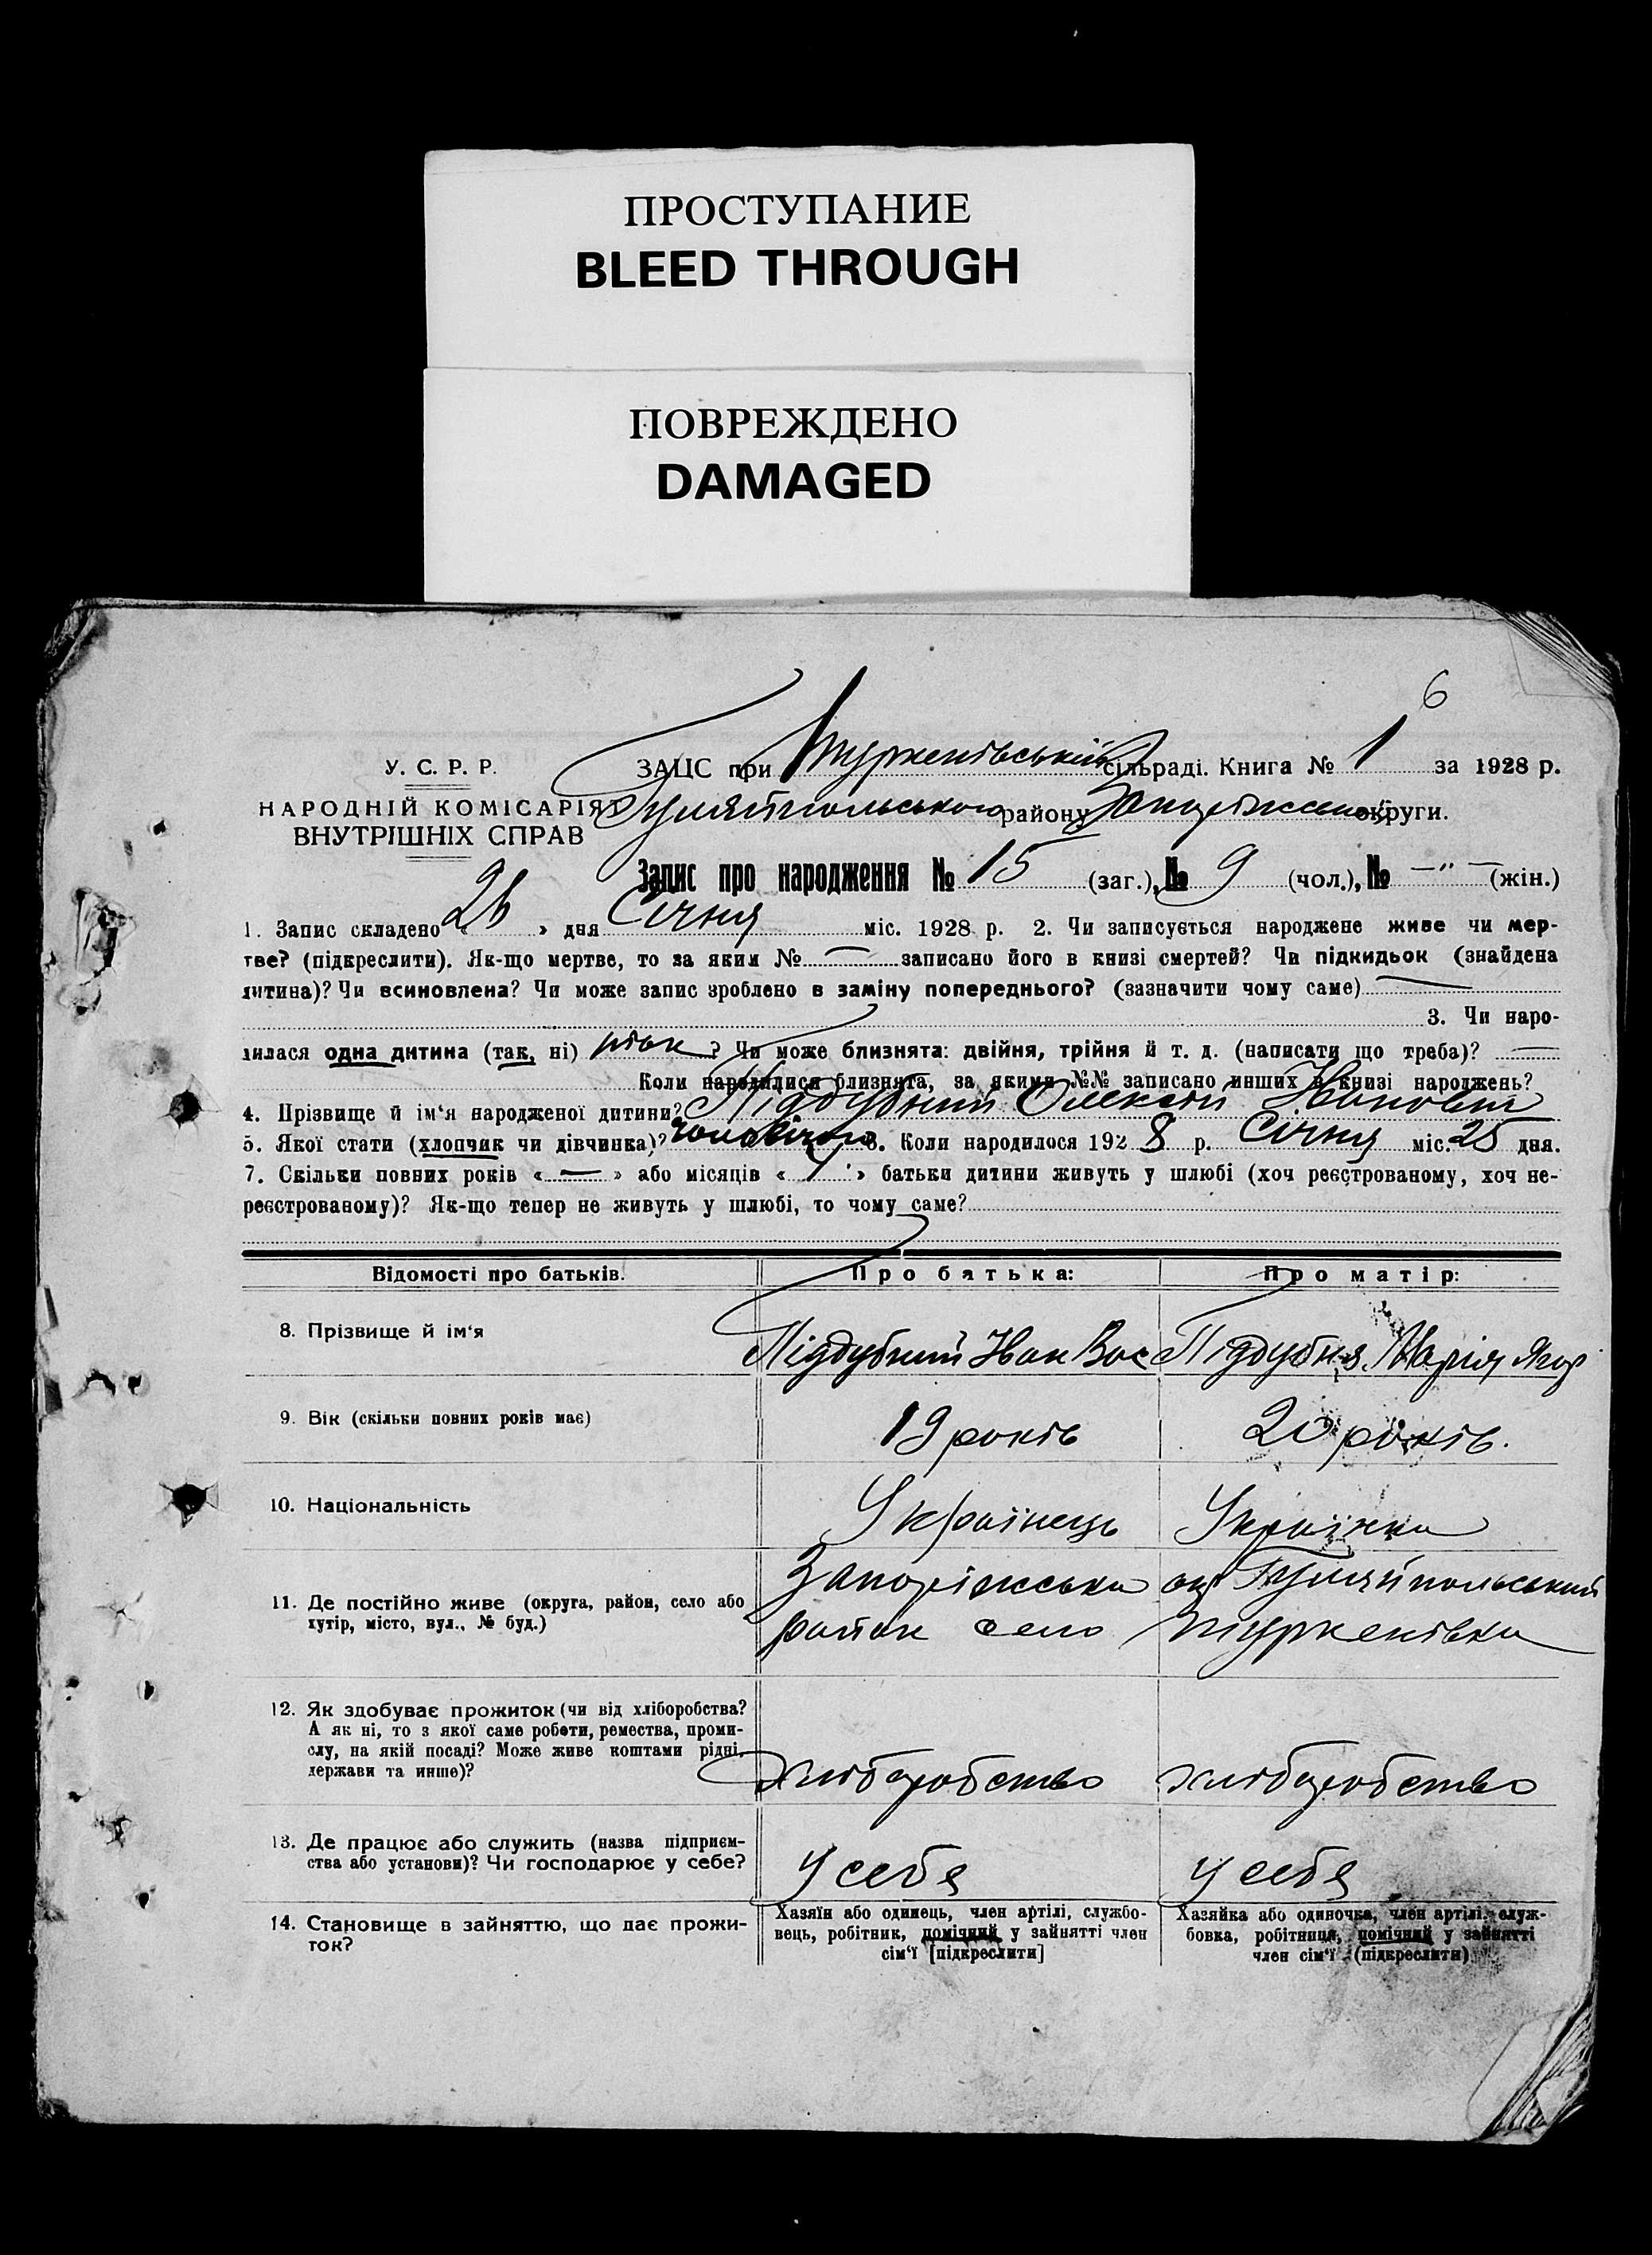 ПРОСТУПАНИЕ
BLEED THROUGH
ПОВРЕЖДЕНО
DAMAGED
6
У. С. Р. Р.
НАРОДНІЙ КОМІСАРІЯТ
ВНУТРІШНІХ СПРАВ
ЗАЦС при Туркенівський сільраді. Книга № 1 за 1928 р.
Гуляйпольського району Запоріжської округи.
Запис про народження № 15 (заг.), № 9 (чол.), № —"— (жін.)
1. Запис складено « 26 » дня Січня міс. 1928 р. 2. Чи записується народжене живе чи мер-
тве? (підкреслити). Як-що мертве, то за яким № — записано його в книзі смертей? Чи підкидьок (знайдена
дитина)? Чи всиновлена? Чи може запис зроблено в заміну попереднього? (зазначити чому саме) —
3. Чи наро-
дилася одна дитина (так, ні) так ? Чи може близнята: двійня, трійня й т. д. (написати що треба)? —
Коли народилися близнята, за якими №№ записано инших в книзі народжень?
4. Прізвище й ім'я народженої дитини? Піддубний Олексій Іванович
5. Якої стати (хлопчик чи дівчинка)? чоловічого 6. Коли народилося 1928 р. Січня міс. 25 дня.
7. Скільки повних років « — » або місяців « » батьки дитини живуть у шлюбі (хоч реєстрованому, хоч не-
реєстрованому)? Як-що тепер не живуть у шлюбі, то чому саме?
Відомості про батьків. Про батька: Про матір:
8. Прізвище й ім'я Піддубний Іван Вас Піддубня Марія Ягор
9. Вік (скільки повних років має) 19 років 20 років.
10. Національність Українець Українка
11. Де постійно живе (округа, район, село або Запоріжська окр Гуляйпольський
хутір, місто, вул., № буд.) район село Туркенівка
12. Як здобуває прожиток (чи від хліборобства?
А як ні, то з якої саме роботи, ремества, проми-
слу, на якій посаді? Може живе коштами рідні,
держави та инше)? хліборобство хліборобство
13. Де працює або служить (назва підприєм-
ства або установи)? Чи господарює у себе? у себя у себя
14. Становище в зайняттю, що дає прожи-
ток?
Хазяїн або одинець, член артілі, службо-
вець, робітник, помічний у зайнятті член
сім'ї [підкреслити]
Хазяйка або одиночка, член артілі, служ-
бовка, робітниця, помічний у зайнятті
член сім'ї (підкреслити)